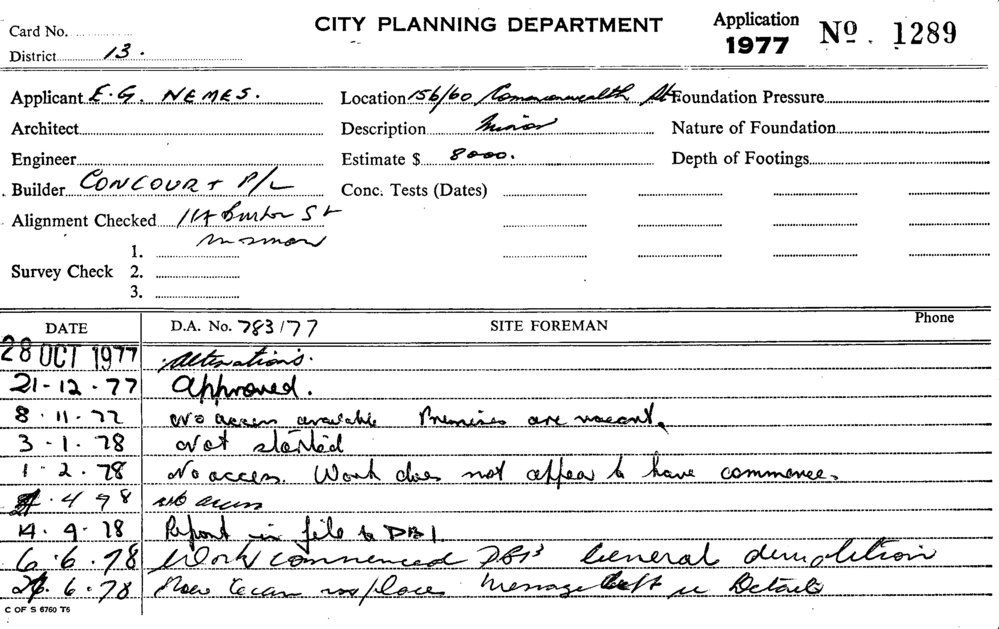 Card No.
District 13.
CITY PLANNING DEPARTMENT
Application
1977
No. 1289
Applicant E.G. NEMES.
Location 156/60 Commonwealth St
Foundation Pressure
Architect
Description Minor
Nature of Foundation
Engineer
Estimate $ 8000.
Depth of Footings
Builder CONCOURT P/L
Conc. Tests (Dates)
Alignment Checked St
Mosman
1.
Survey Check 2.
3.
DATE D.A. No. 783/77 SITE FOREMAN Phone
28 OCT 1977 Alterations.
21-12.77 Approved.
8.11.77 No access available Premises are vacant.
3-1.78 Not started
1-2.78 No access. Work does not appear to have commence.
4 98 no access
14.9.78 Report in file to DB1
6.6.78 Work commenced General demolition
6.78 Message left Details
C OF S 6760 T6